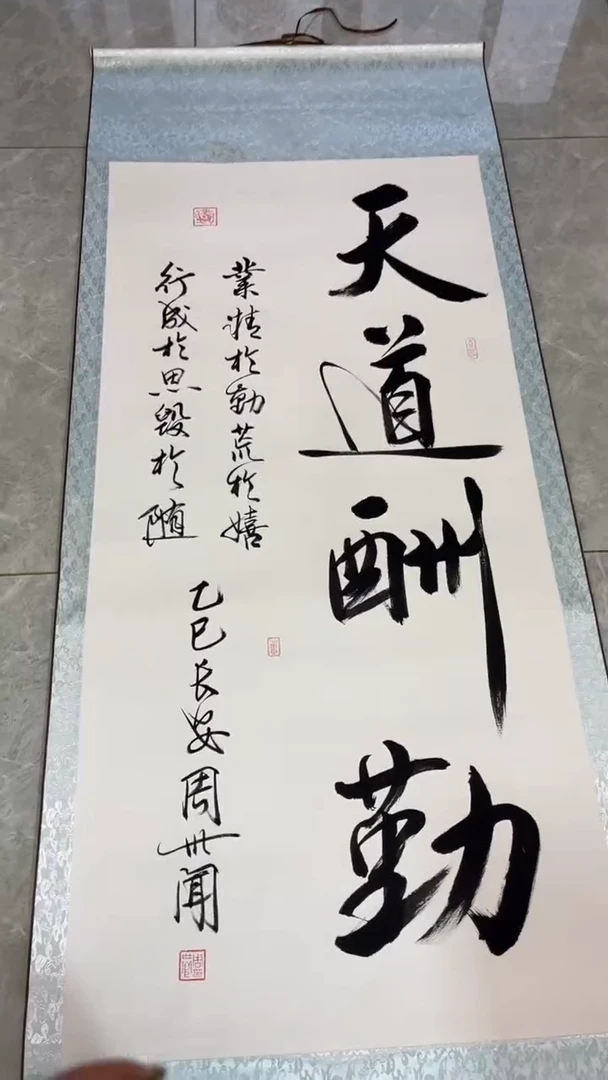 天道酬勤
業精於勤荒於嬉
行成於思毀於随
乙巳长安周世闻